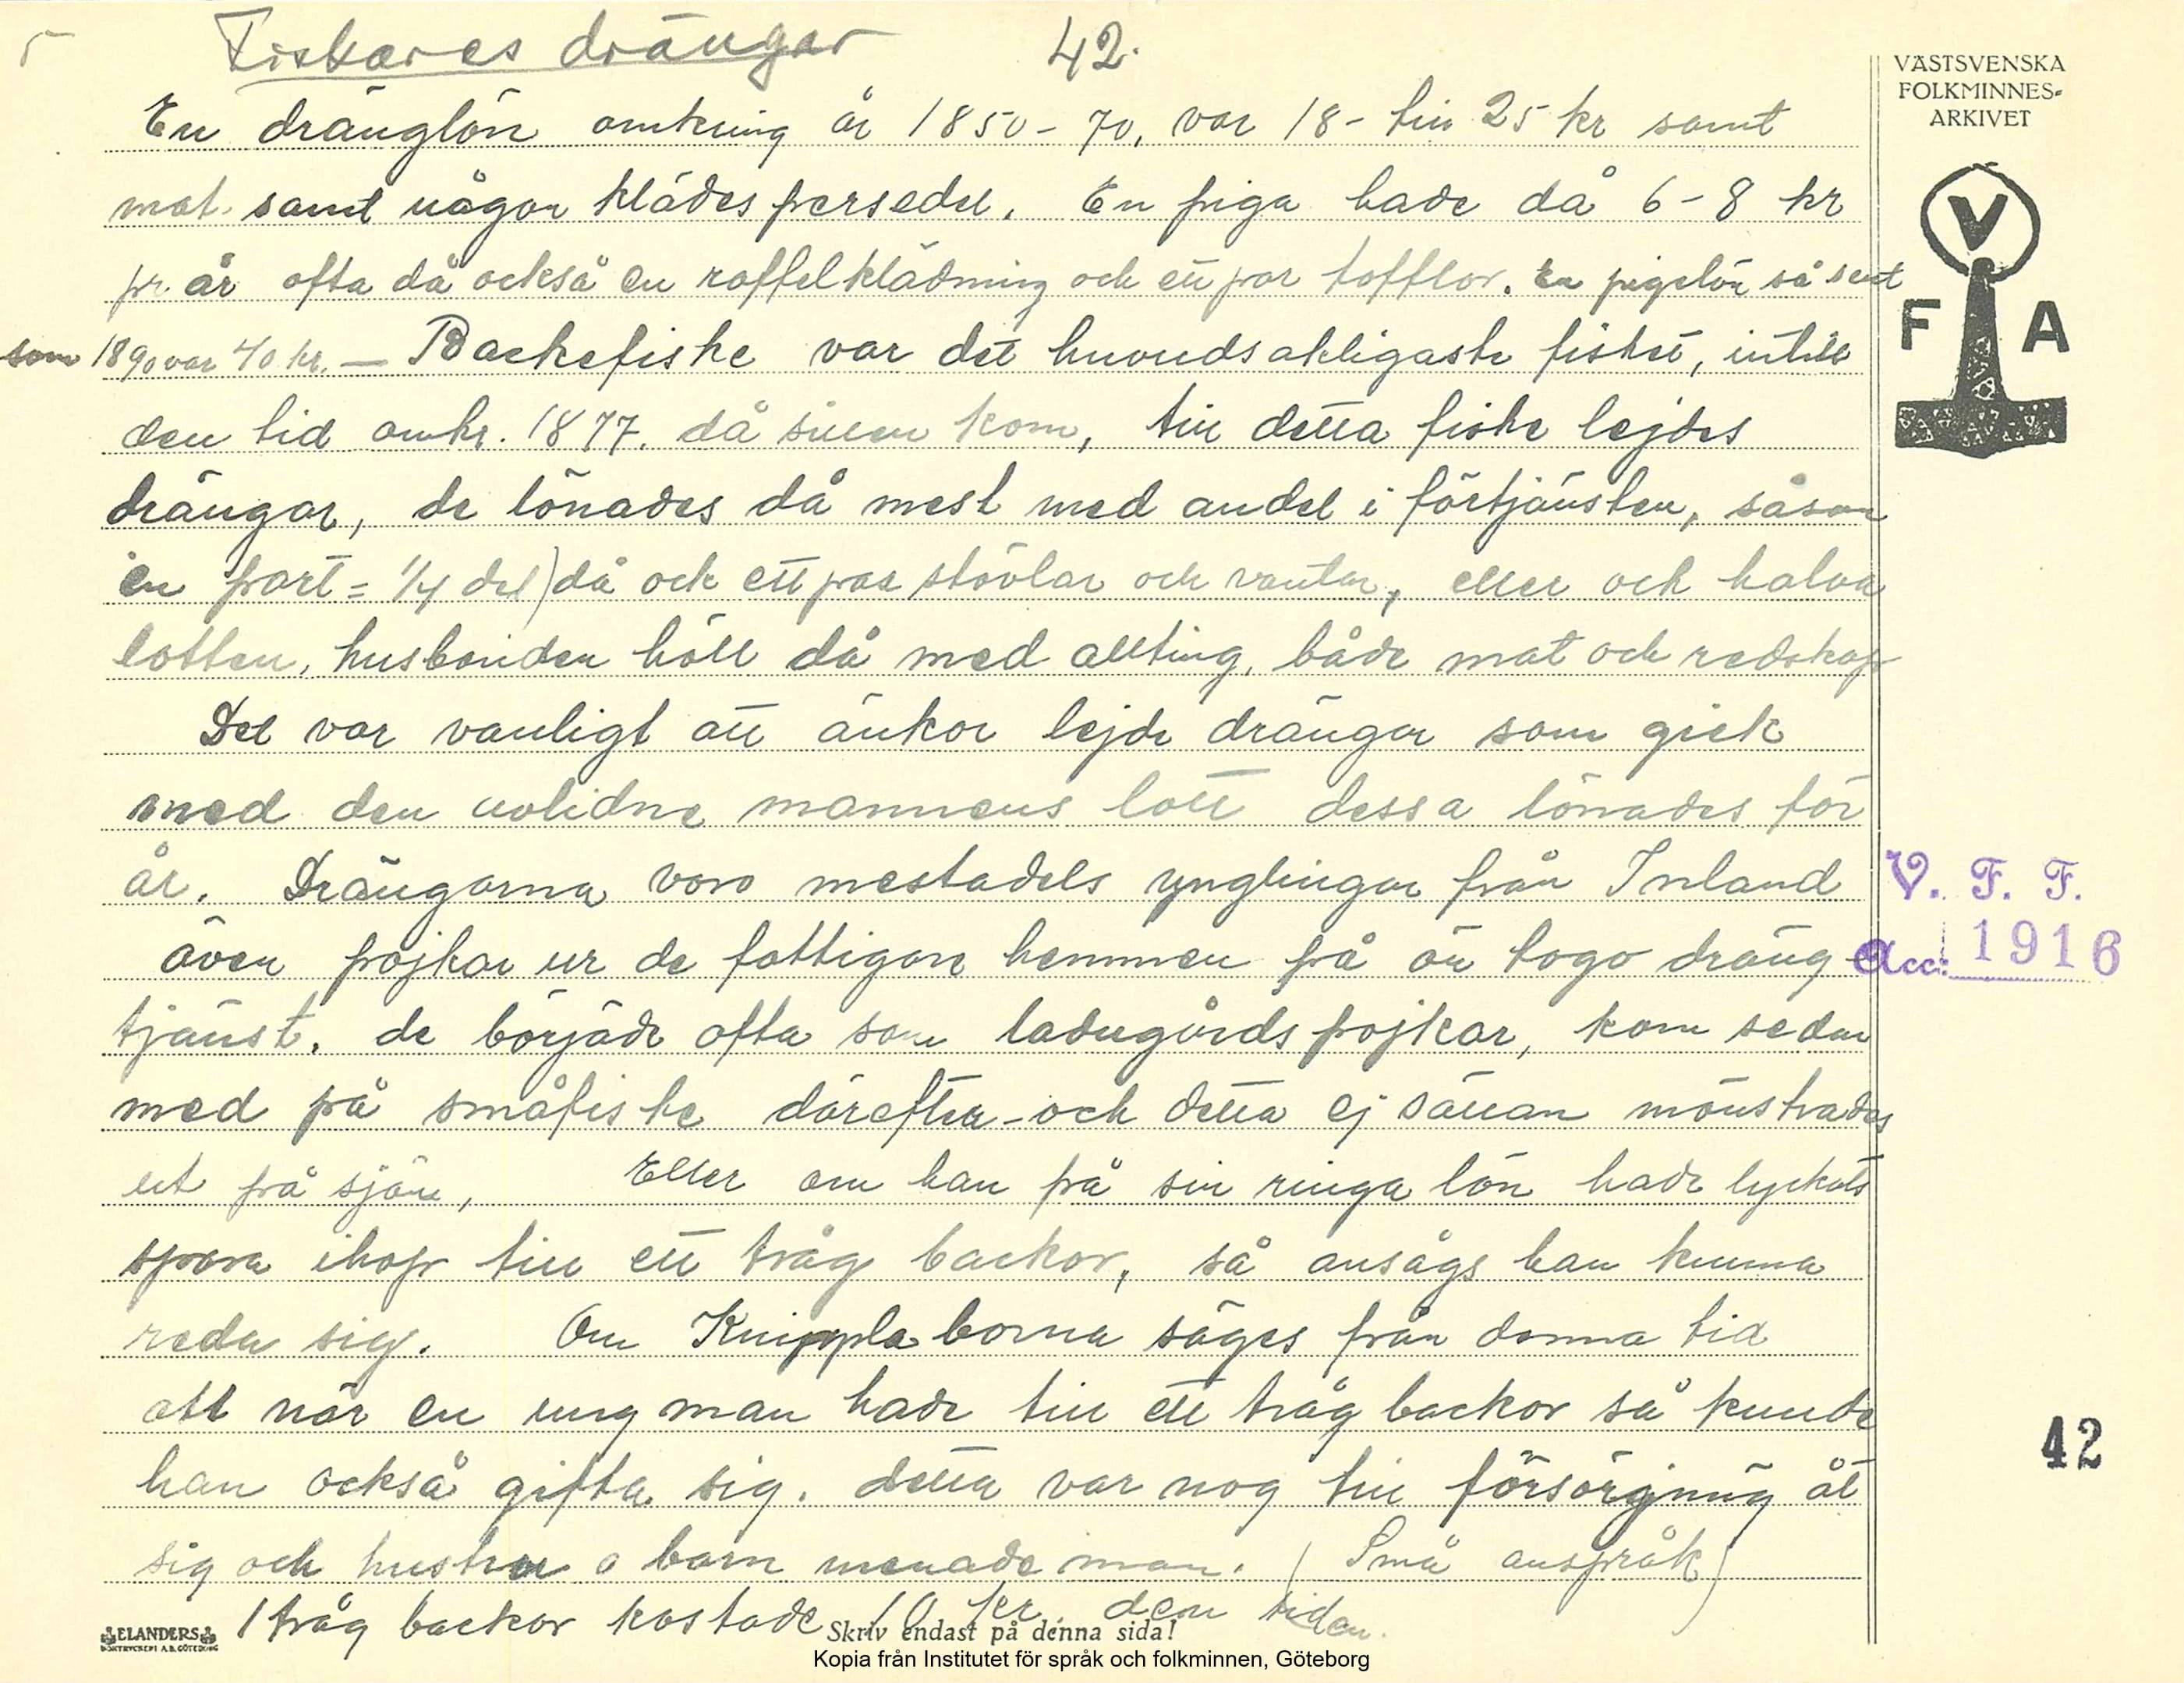 Fiskares drängar 42.
VÄSTSVENSKA
FOLKMINNES-
ARKIVET
V
F A
En dränglön omkring år 1850-70, var 18- till 25 kr samt
mat. samt någon klädespersedel. En piga hade då 6-8 kr
pr. år ofta då också en raffelklädning och ett par tofflor. En pigelön så sent
som 1890 var 40 kr. — Backefiske var det huvudsakligaste fisket, intill
den tid omkr. 1877. då sillen kom, till detta fiske lejdes
drängar, de lönades då mest med andel i förtjänsten, såsom
en part = 1/4 del) då ock ett par stövlar och vantar, eller och halva
lotten, husbonden höll då med allting, både mat och redskap
Det var vanligt att änkor lejde drängar som gick
med den avlidne mannens lott dessa lönades för
år. Drängarna voro mestadels ynglingar från Inland
även pojkar ur de fattigare hemmen på ön togo dräng-
tjänst, de började ofta som ladugårdspojkar, kom sedan
med på småfiske därefter - och detta ej sällan mönstrades
ut på sjön, Eller om han på sin ringa lön hade lyckats
spara ihop till ett tråg backor, så ansågs han kunna
reda sig. Om Knippla borna säges från denna tid
att när en ung man hade till ett tråg backor så kunde
han också gifta sig. detta var nog till försörgning åt
sig och hustru o barn menade man. (Små anspråk)
1 tråg backor kostade 10 kr. den tiden.
V. F. F.
Acc: 1916
42
ELANDERS
BOKTRYCKERI A.B. GÖTEBORG
Skriv endast på denna sida!
Kopia från Institutet för språk och folkminnen, Göteborg